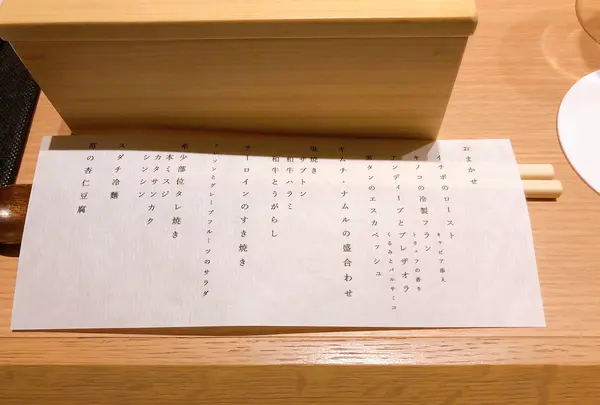 おまかせ
イチボのロースト
キャビア添え
キノコの冷製フラン
トリュフの香り
アンディーブとブレザオラ
くるみとバルサミコ
牡タンのエスカベッシュ
キムチ・ナムルの盛合わせ
塩焼き
ザブトン
和牛ハラミ
和牛とうがらし
サーロインのすき焼き
とグレープフルーツのサラダ
希少部位タレ焼き
本ミスジ
カタサンカク
シンシン
スダチ冷麺
の杏仁豆腐